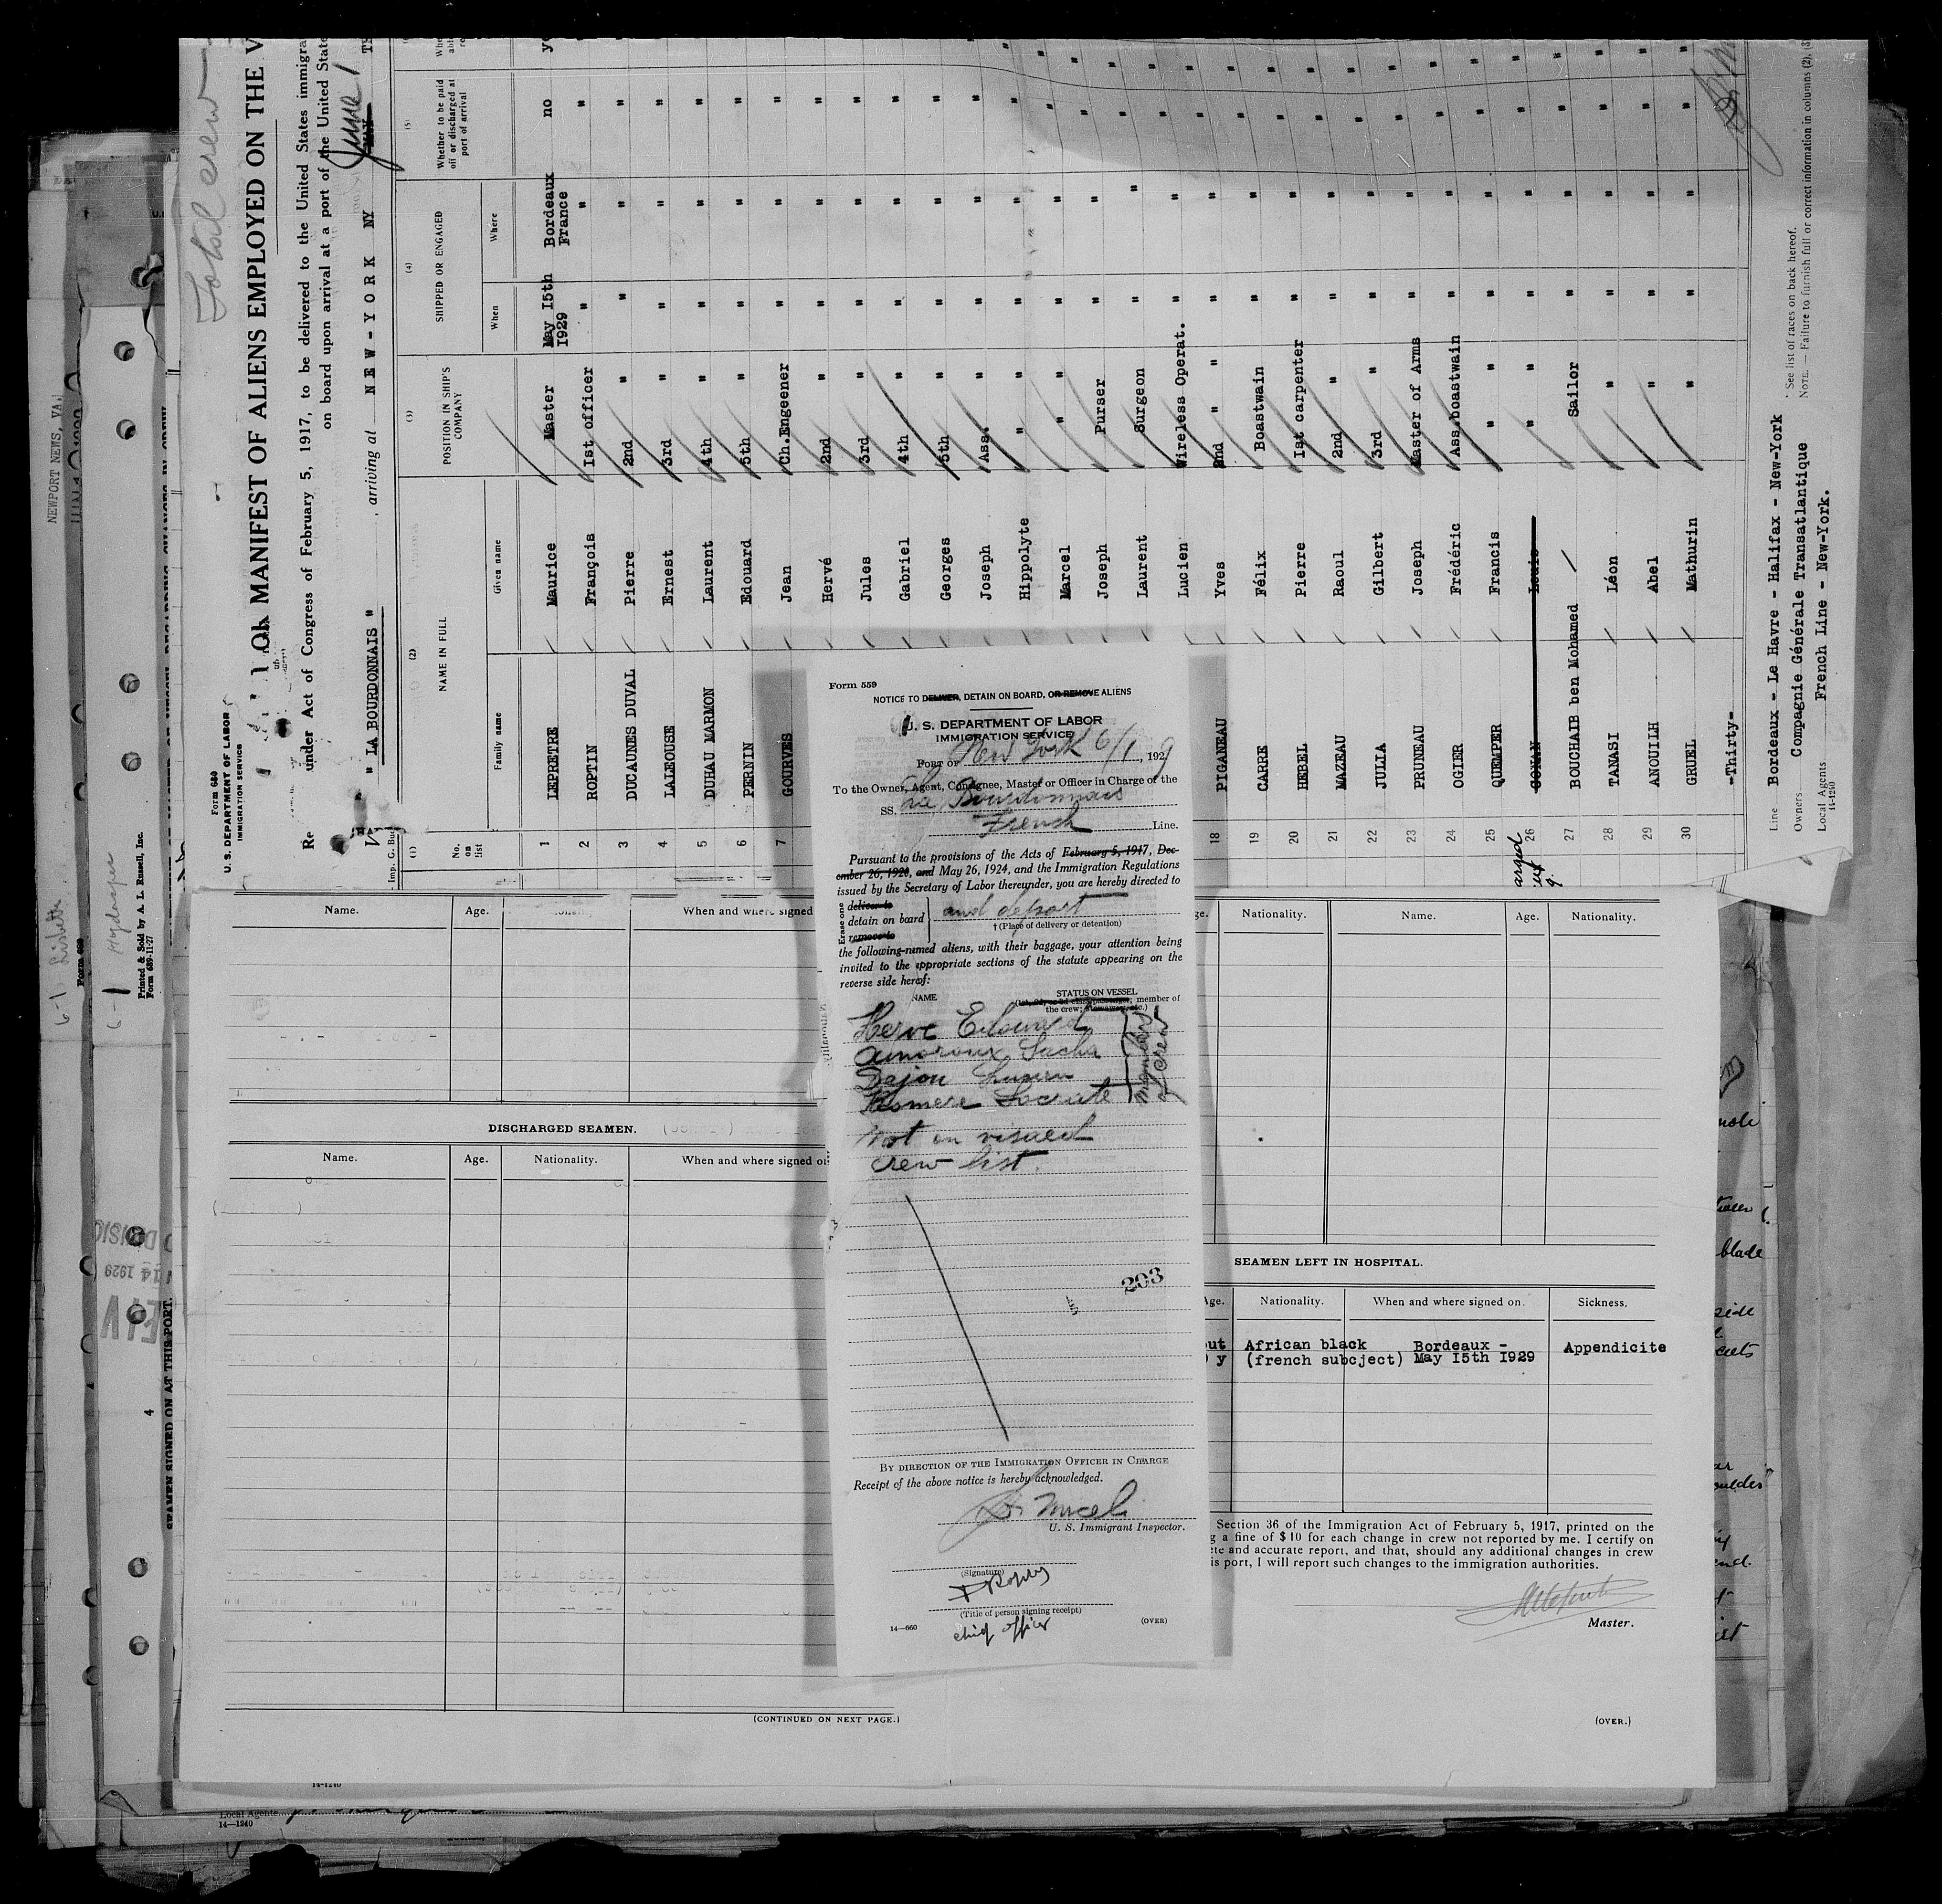 Total crew
Form 680
U. S. DEPARTMENT OF LABOR
IMMIGRATION SERVICE
MANIFEST OF ALIENS EMPLOYED ON THE V
under Act of Congress of February 5, 1917, to be delivered to the United States immigra
on board upon arrival at a port of the United State
" LA BOURDONNAIS " , arriving at NEW-YORK NY June 1
(1) (2) (3) (4) (5)
No. on list NAME IN FULL POSITION IN SHIP'S COMPANY SHIPPED OR ENGAGED Whether to be paid off or discharged at port of arrival
Family name Given name When Where
1 LEPRETRE Maurice Master May 15th 1929 Bordeaux France no
2 ROPTIN François Ist officer " " "
3 DUCAUNES DUVAL Pierre 2nd " " " "
4 LALEOUSE Ernest 3rd " " " "
5 DUHAU MARMON Laurent 4th " " " "
6 PERNIN Edouard 5th " " " "
7 GOURVES Jean Ch.Engeener " " "
Hervé 2nd " " " "
Jules 3rd " " " "
Gabriel 4th " " " "
Georges 5th " " " "
Joseph Ass. " " " "
Hippolyte " " " " "
Marcel " " " " "
Joseph Purser " " "
Laurent Surgeon " " "
Lucien Wireless Operat. " " "
18 PIGANEAU Yves 2nd " " " " "
19 CARRE Félix Boastwain " " "
20 HEBEL Pierre Ist carpenter " " "
21 MAZEAU Raoul 2nd " " " "
22 JULIA Gilbert 3rd " " " "
23 PRUNEAU Joseph Master of Arms " " "
24 OGIER Frédéric Ass.boastwain " " "
25 QUEMPER Francis " " " " "
26 CONAN Louis " " " " "
27 BOUCHAIB ben Mohamed / Sailor " " "
28 TANASI Léon " " " "
29 ANOUILH Abel " " " "
30 GRUEL Mathurin " " " "
-Thirty-
Line Bordeaux - Le Havre - Halifax - New-York
Owners Compagnie Générale Transatlantique
Local Agents French Line - New-York.
14-1240
* See list of races on back hereof.
NOTE.— Failure to furnish full or correct information in columns (2), (3)
Form 559
NOTICE TO DELIVER, DETAIN ON BOARD, OR REMOVE ALIENS
U. S. DEPARTMENT OF LABOR
IMMIGRATION SERVICE
PORT OF New York 6/1, 1929
To the Owner, Agent, Consignee, Master or Officer in Charge of the
SS. La Bourdonnais
French Line.
Pursuant to the provisions of the Acts of February 5, 1917, Dec-
ember 26, 1920, and May 26, 1924, and the Immigration Regulations
issued by the Secretary of Labor thereunder, you are hereby directed to
Erase one
deliver to
detain on board and deport
remove to
† (Place of delivery or detention)
the following-named aliens, with their baggage, your attention being
invited to the appropriate sections of the statute appearing on the
reverse side hereof:
NAME STATUS ON VESSEL
(1st, 2d, or 3d class passenger, member of
the crew, stowaway, etc.)
Herve Edouard
Amoroux Sacha
Dejou
Homere Socrate
Members of crew
Not on visaed
crew list.
203
BY DIRECTION OF THE IMMIGRATION OFFICER IN CHARGE
Receipt of the above notice is hereby acknowledged.
U. S. Immigrant Inspector.
(Signature)
(Title of person signing receipt)
chief officer
14—660 (OVER)
Name. Age. When and where signed
Nationality. Name. Age. Nationality.
DISCHARGED SEAMEN.
Name. Age. Nationality. When and where signed on
SEAMEN LEFT IN HOSPITAL.
Age. Nationality. When and where signed on. Sickness.
African black Bordeaux - Appendicite
(french subcject) May 15th 1929
Section 36 of the Immigration Act of February 5, 1917, printed on the
g a fine of $10 for each change in crew not reported by me. I certify on
te and accurate report, and that, should any additional changes in crew
is port, I will report such changes to the immigration authorities.
Master.
(CONTINUED ON NEXT PAGE.)
(OVER.)
Local Agents
14—1240
NEWPORT NEWS, VA.
6-1
Form 689
6-1 Hydasper
Printed & Sold by A. L. Russell, Inc.
Form 689-11-27
SEAMEN SIGNED ON AT THIS PORT.
4
14 1929
blade
side